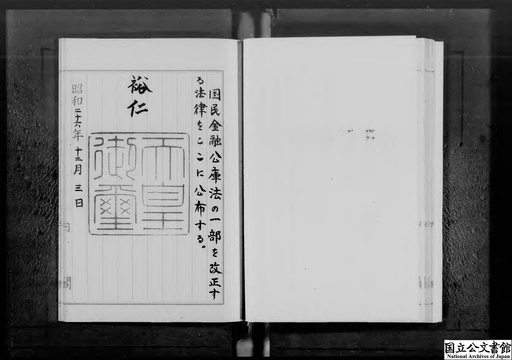 国民金融公庫法の一部を改正す
る法律をここに公布する。
裕仁
天皇
御璽
昭和二十六年十二月三日
国立公文書館
National Archives of Japan